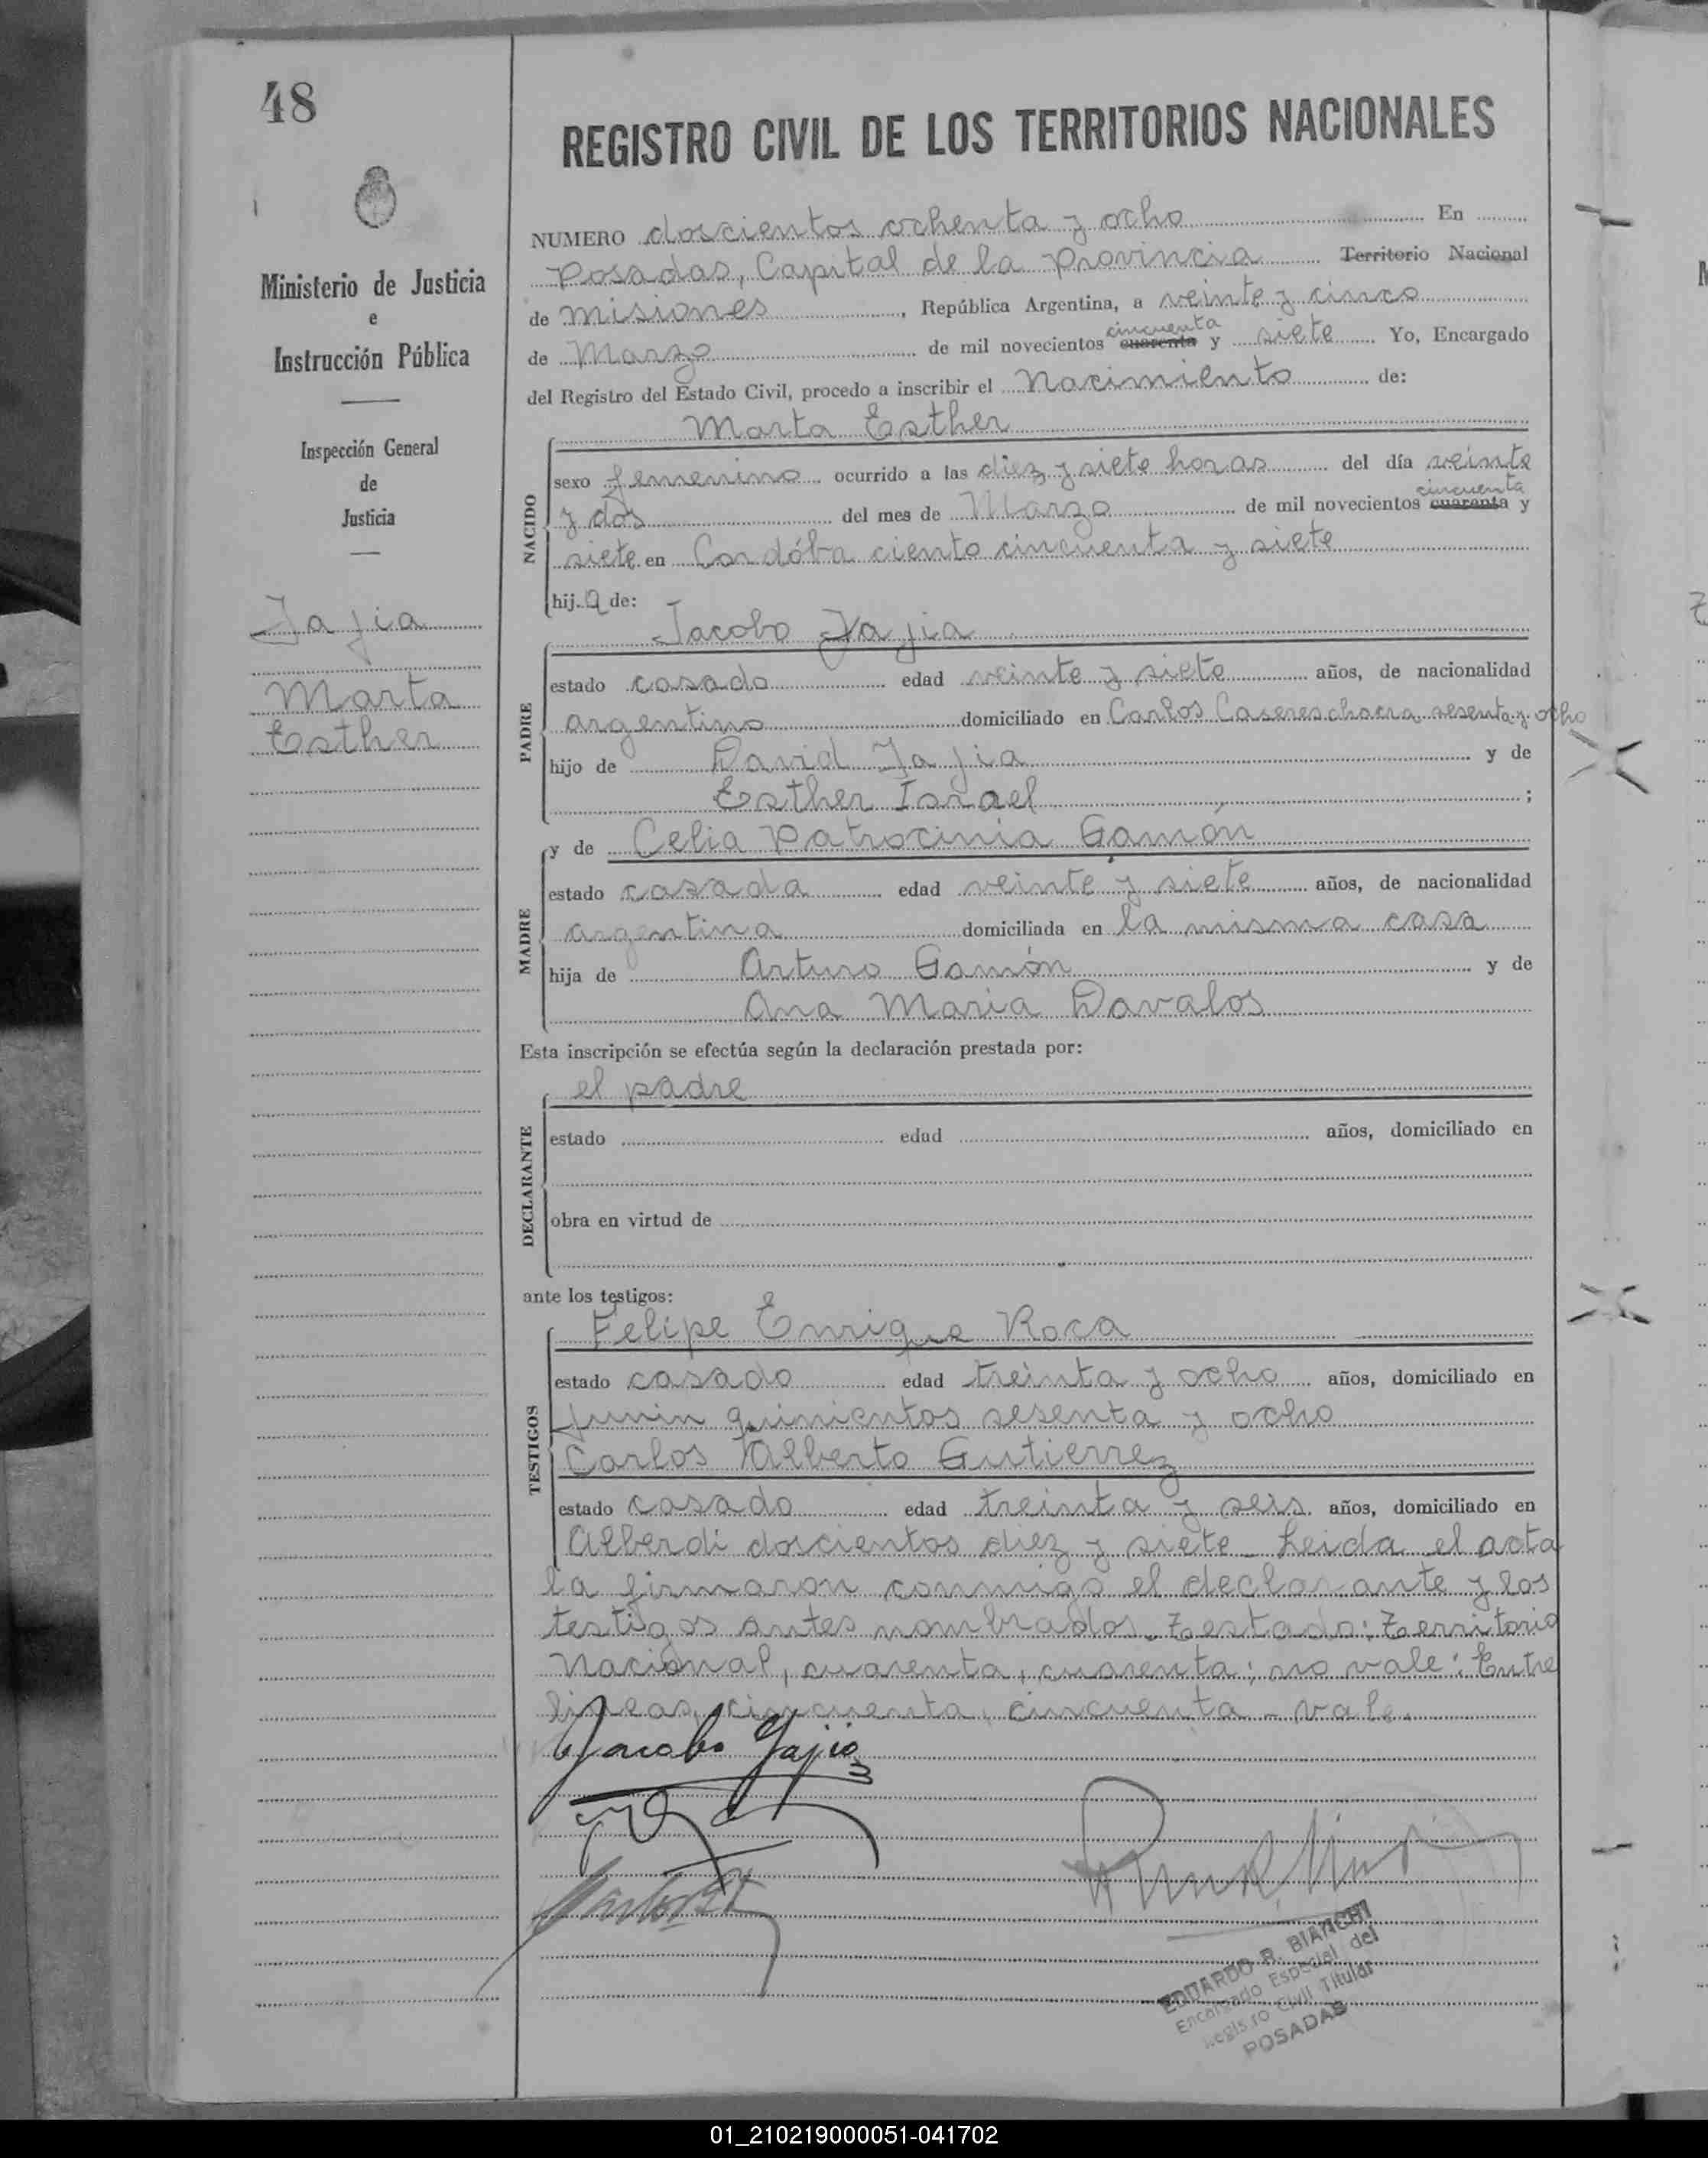 48
REGISTRO CIVIL DE LOS TERRITORIOS NACIONALES
Ministerio de Justicia
e
Instrucción Pública
Inspección General
de
Justicia
Jajia
Marta
Esther
NUMERO doscientos ochenta y ocho En
Posadas, Capital de la Provincia Territorio Nacional
de Misiones, República Argentina, a veinte y cinco
de Marzo de mil novecientos cuarenta cincuenta y siete Yo, Encargado
del Registro del Estado Civil, procedo a inscribir el Nacimiento de:
NACIDO
Marta Esther
sexo femenino ocurrido a las diez y siete horas del día veinte
y dos del mes de Marzo de mil novecientos cuarenta cincuenta y
siete en Cordóba ciento cincuenta y siete
hija de:
PADRE
Jacobo Jajia
estado casado edad veinte y siete años, de nacionalidad
argentino domiciliado en Carlos Caseres chacra sesenta y ocho
hijo de David Jajia y de
Esther Israel;
MADRE
y de Celia Patrocinia Gamón
estado casada edad veinte y siete años, de nacionalidad
argentina domiciliada en la misma casa
hija de Arturo Gamón y de
Ana Maria Davalos
Esta inscripción se efectúa según la declaración prestada por:
DECLARANTE
el padre
estado edad años, domiciliado en
obra en virtud de
ante los testigos:
TESTIGOS
Felipe Enrique Roca
estado casado edad treinta y ocho años, domiciliado en
Junin quinientos sesenta y ocho
Carlos Alberto Gutierrez
estado casado edad treinta y seis años, domiciliado en
Alberdi doscientos diez y siete. Leida el acta
la firmaron conmigo el declarante y los
testigos antes nombrados. Testado: Territorio
Nacional, cuarenta, cuarenta; no vale: Entre
lineas, cincuenta, cincuenta - vale.
Jacobo Jajia
EDUARDO R. BIANCHI
Encargado Especial del
Registro Civil Titular
POSADAS
01_210219000051-041702